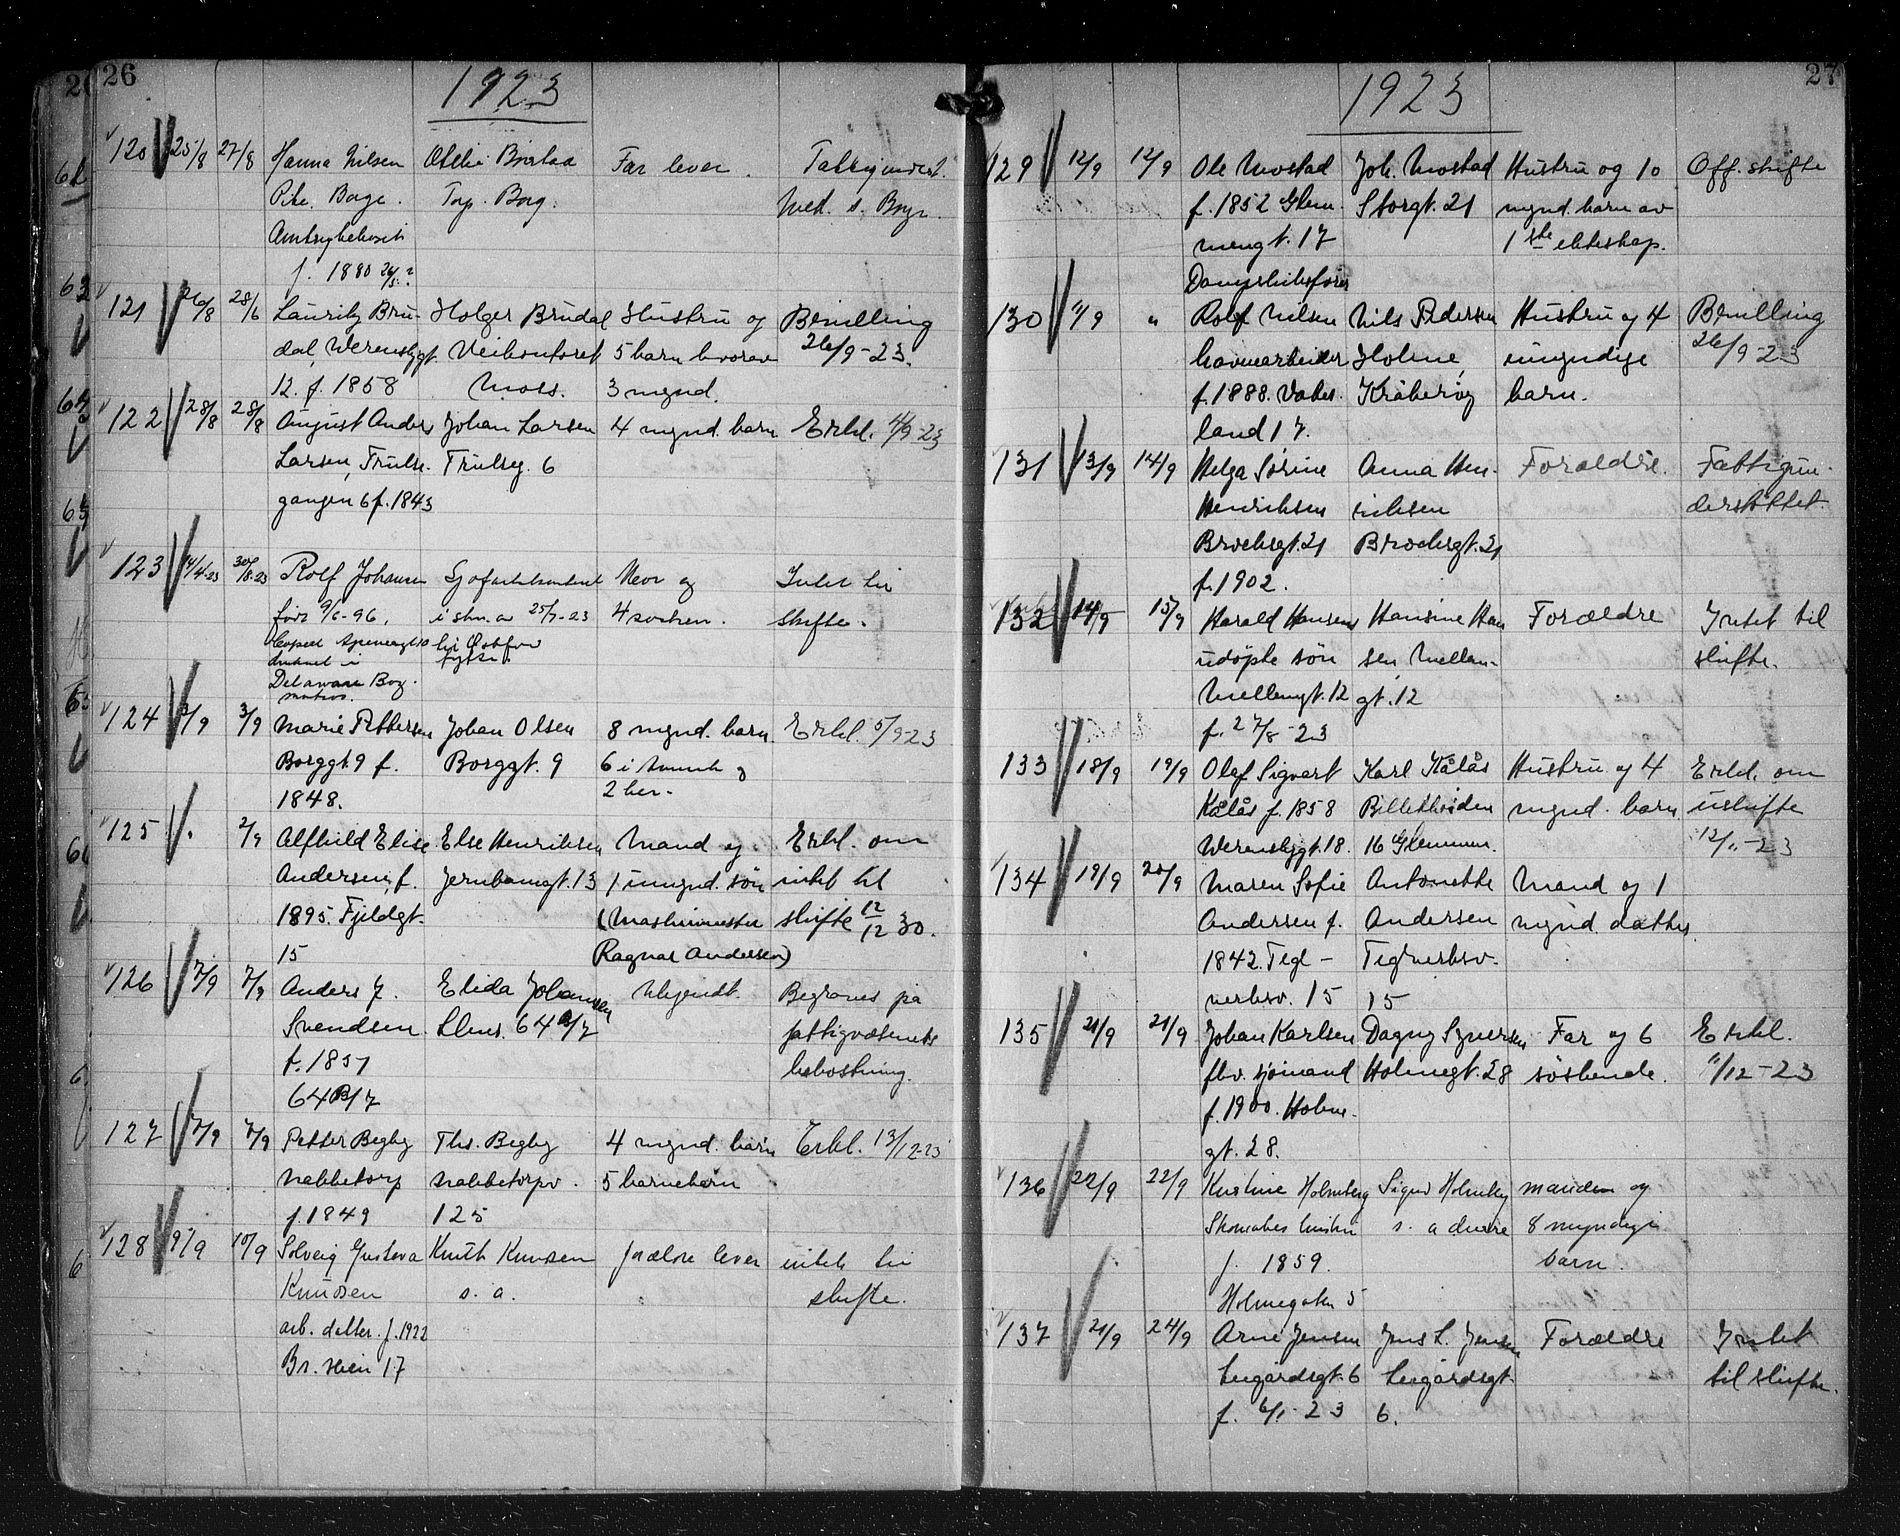 26
1923
120 25/8 27/8 Hanna Nilsen Far lever.
Pike. Borge. Torp. Borg.
f. 1880
121 26/8 28/6 Lauritz Bru- Holger Brudal Hustru og Bevilling
dal, Werenskgt. Veikontoret 5 barn hvorav 26/9-23.
12. f. 1858 Moss. 3 mynd.
122 28/8 28/8 August Anders Johan Larsen 4 mynd. barn Erkl. 23
Larsen, Trulse- Trulseg. 6
gangen 6 f. 1843
123 14/4-23 30/8-23 Rolf Johansen Sjøfartskontoret Mor og Intet til
født 9/6-96. 25/7-23 4 søsken. skifte.
druknet i
Delaware Bay.
matros.
124 3/9 3/9 Marie Pettersen Johan Olsen 8 mynd. barn Erkl. 5/9-23
Borggt. 9 f. Borggt. 9 6 i Amerik og
1848. 2 her.
125 2/9 Alfhild Elise Else Henriksen Mand og Erkl. om
Andersen, f. Jernbanegt. 13 1 umynd. søn intet til
1895. Fjeldgt. (Maskinmester skifte 12/12 30.
15 Ragnar Andersen)
126 7/9 7/9 Anders J. Elida Johansen Ukjendt. Begraves på
Svendsen Lkns. 64 B/7 fattigvæsenets
f. 1851 bekostning.
64 B/7
127 7/9 7/9 Petter Begby Ths. Begby 4 mynd. barn Erkl. 13/12-23
Nabbetorp Nabbetorpv. 5 barnebarn
f. 1849 125
128 9/9 10/9 Solveig Gustava Knuth Knudsen forældre lever intet til
Knudsen s. a. skifte.
arb. datter. f. 1922
17
27
1923
129 12/9 12/9 Ole Mostad Joh. Mostad Hustru og 10 Off. skifte
f. 1852 Glem- Storgt. 21 mynd. barn av
mengt. 17 1ste ekteskap.
Dampskibsfører
130 11/9 " Rolf Nilsen Nils Pedersen Hustru og 4 Bevilling
havnearbeider Holme, umyndige 26/9-23
f. 1888. Vater- Kråkerøy barn.
land 17.
131 13/9 14/9 Helga Sørine Anna Hen- Forældre. Fattigun-
Henriksen riksen derstøttet.
Brochsgt. 21 Brochsgt. 21
f. 1902.
132 14/9 15/9 Harald Hansens Hansine Han Forældre Intet til
udøpte søn sen, Mellem- skifte.
Mellemgt. 12 gt. 12
f. 27/8-23
133 18/9 19/9 Olaf Sigvart Karl Kålås Hustru og 4 Erkl. om
Kålås f. 1858 mynd. barn uskifte
Werenskgt. 18. 16 Glemmen. 23
134 19/9 20/9 Maren Sofie Antonette Mand og 1
Andersen f. Andersen mynd. datter.
1842. Tegl- Teglverksv.
verksv. 15 15
135 21/9 21/9 Johan Karlsen Dagny Syversen Far og 6 Erkl.
fhv. sjømand Holmegt. 28 søskende. 11/12-23
f. 1900. Holme-
gt. 28.
136 22/9 22/9 Kristine Holmberg manden og
Skomakers hustru 8 myndige
f. 1859. barn.
Holmegaten 5
137 21/9 24/9 Arne Jensen Jens L. Jensen Forældre Intet
Leigårdsgt. 6 Leigårdsgt. til skifte.
f. 6/1-23 6.